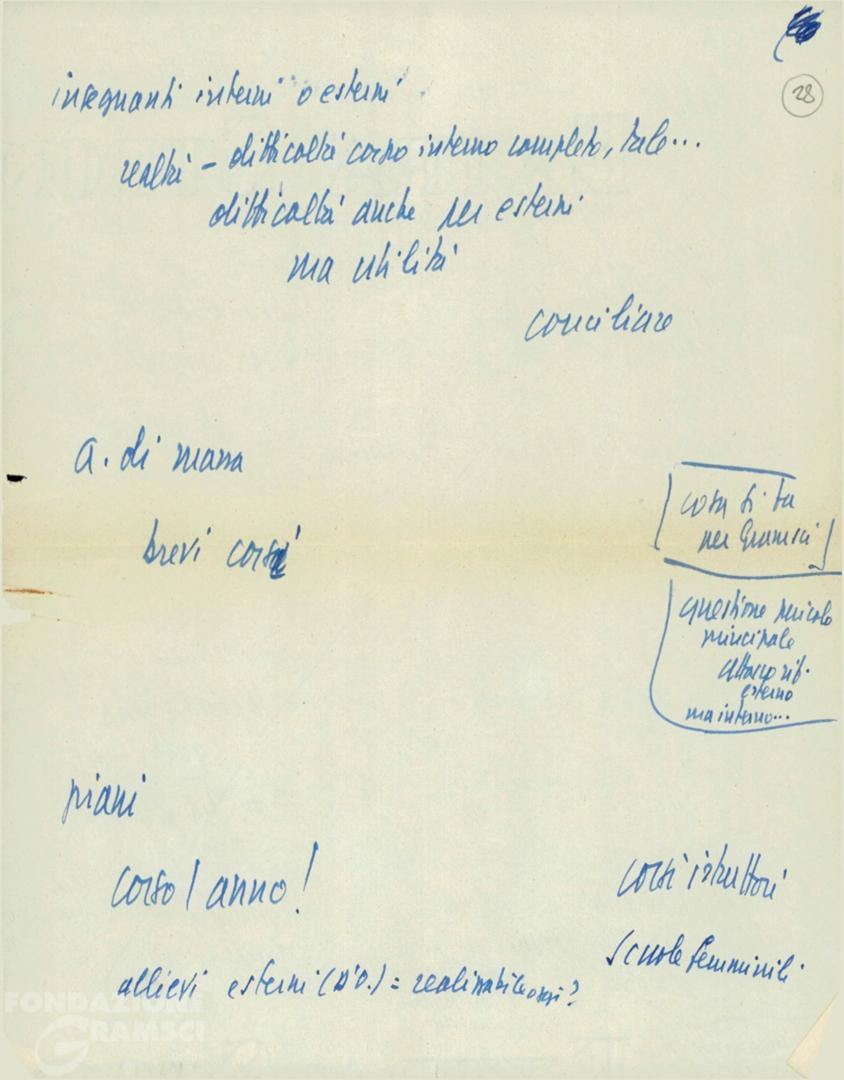 28
insegnanti interni o esterni
realtà - difficoltà corpo interno completo, tale...
difficoltà anche per esterni
ma utilità
conciliare
a. di massa
brevi corsi
cosa si fa
per Gramsci
questione pericolo
principale
attacco rif.
esterno
ma interno...
piani
corso 1 anno!
corsi istruttori
scuole femminili
allievi esterni (D'O.) = realizzabile oggi?
FONDAZIONE
GRAMSCI